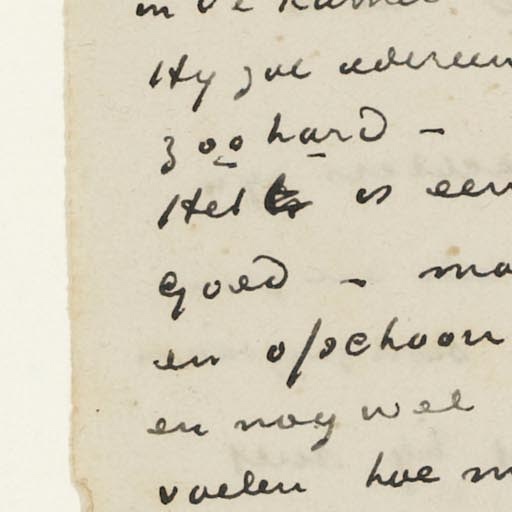 in de kamer
Hy zal iedereen
zoo hard –
Het is een
goed – ma
en ofschoon
en nog wel
voelen hoe m